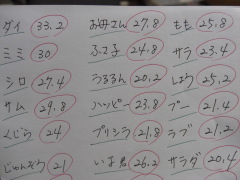 ダイ 33.2 お母さん 27.8 もも 25.8
ミミ 30 ふさ子 24.8 サラ 23.4
シロ 27.4 うるるん 20.2 しほう 25.2
サム 29.8 ハッピー 23.8 プー 21.4
くじら 24 プリシラ 21.8 ラブ 21.2
じゅんぞう 21 いよ君 26.2 サラダ 20.4